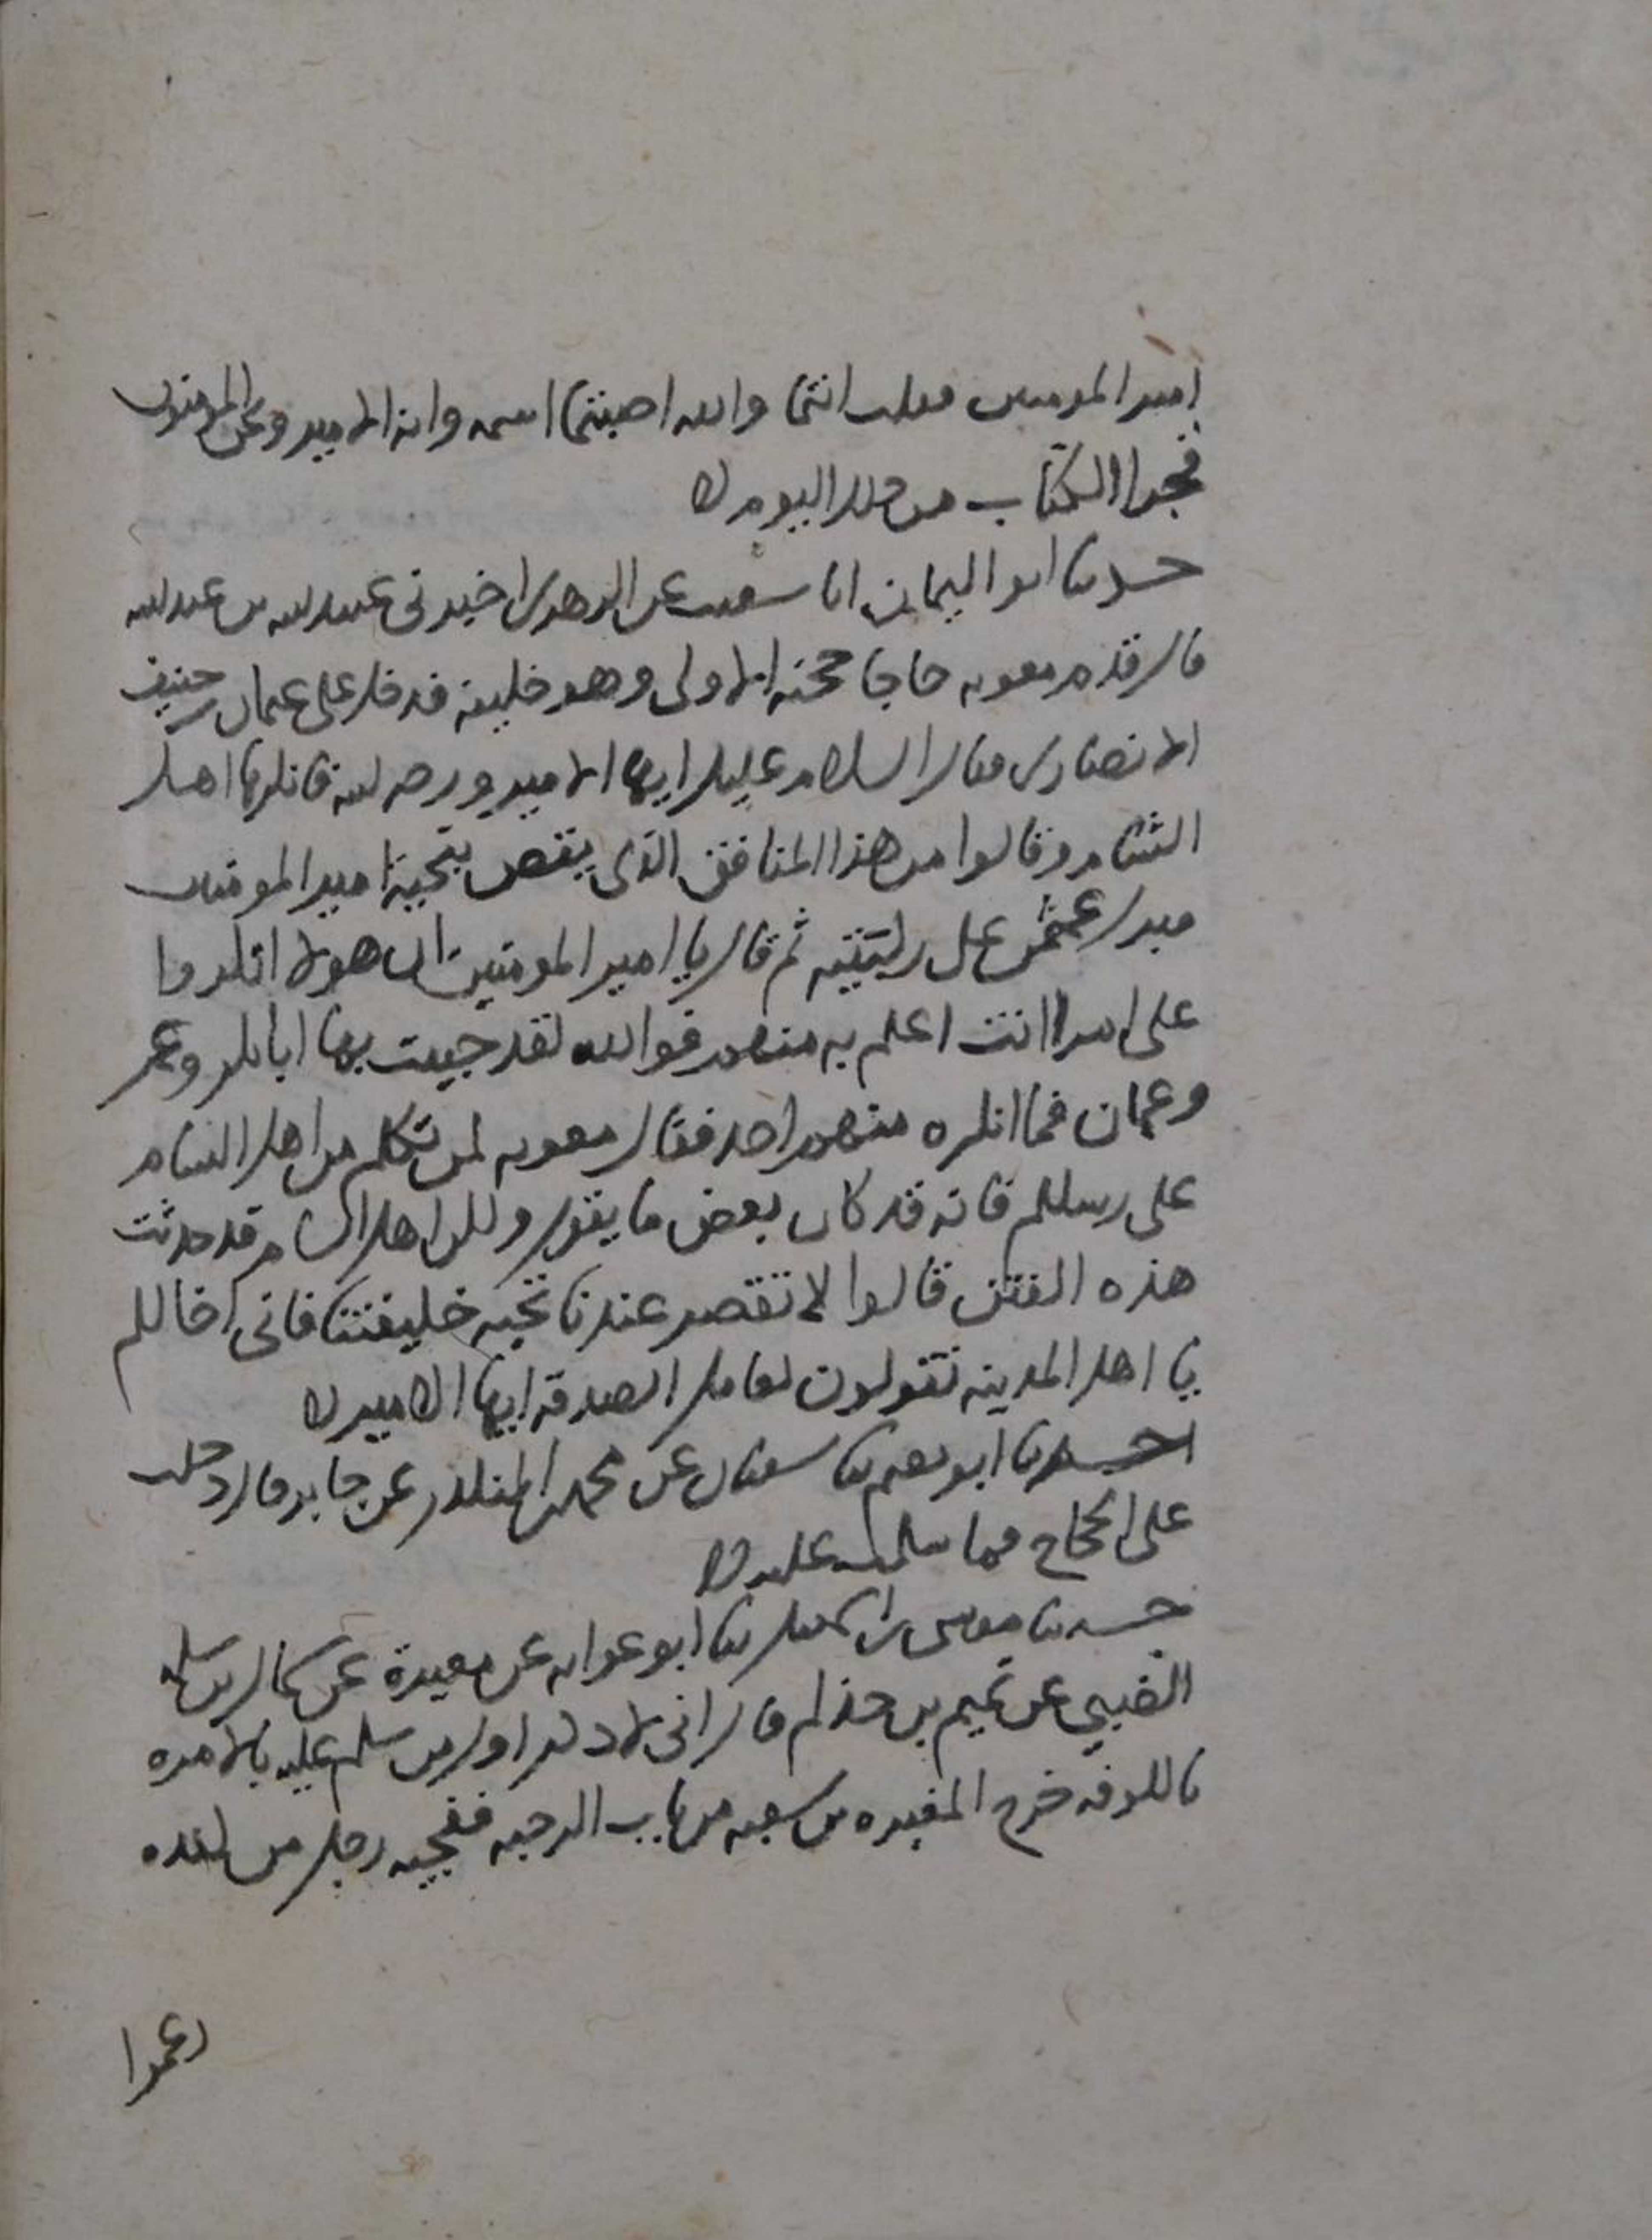 امير المومنين فقلت انتما والله اصبتما اسمه وانه الامير ونحن المومنون
فجرا الكتاب من ذلك اليوم
حدثنا ابو اليمان انا شعيب عن الزهري اخبرني عبيد الله بن عبد الله
قال قدم معويه حاجا حجته الاولى وهو خليفه فدخل على عثمان بن حنيف
الانصاري فقال السلام عليك ايها الامير ورحمه الله فانكرها اهل
الشام وقالوا من هذا المنافق الذي يقصر بتحية امير المومنين
فبرك عثمن على ركبتيه ثم قال يا امير المومنين ان هولا انكروا
على امرا انت اعلم به منهم فوالله لقد حييت بها ابا بكر وعمر
وعثمان فما انكره منهم احد فقال معويه لمن تكلم من اهل الشام
على رسلكم فانه قد كان بعض ما يقول ولكن اهل الشام قد حدثت
هذه الفتن قالوا لا تقصر عندنا تحيه خليفتنا فاني اخالكم
يا اهل المدينه تقولون لعامل الصدقه ايها الامير
حدثنا ابو نعيم ثنا سفيان عن محمد بن المنكدر عن جابر قال دخلت
على الحجاج فما سلمت عليه
حدثنا موسى بن اسمعيل ثنا ابو عوانه عن مغيرة عن سماك بن سلمه
الضبي عن تميم بن حذلم قال اني لاذكر اول من سلم عليه بالامره
بالكوفه خرج المغيره بن شعبه من باب الرحبه ففجيه رجل من كنده
زعموا